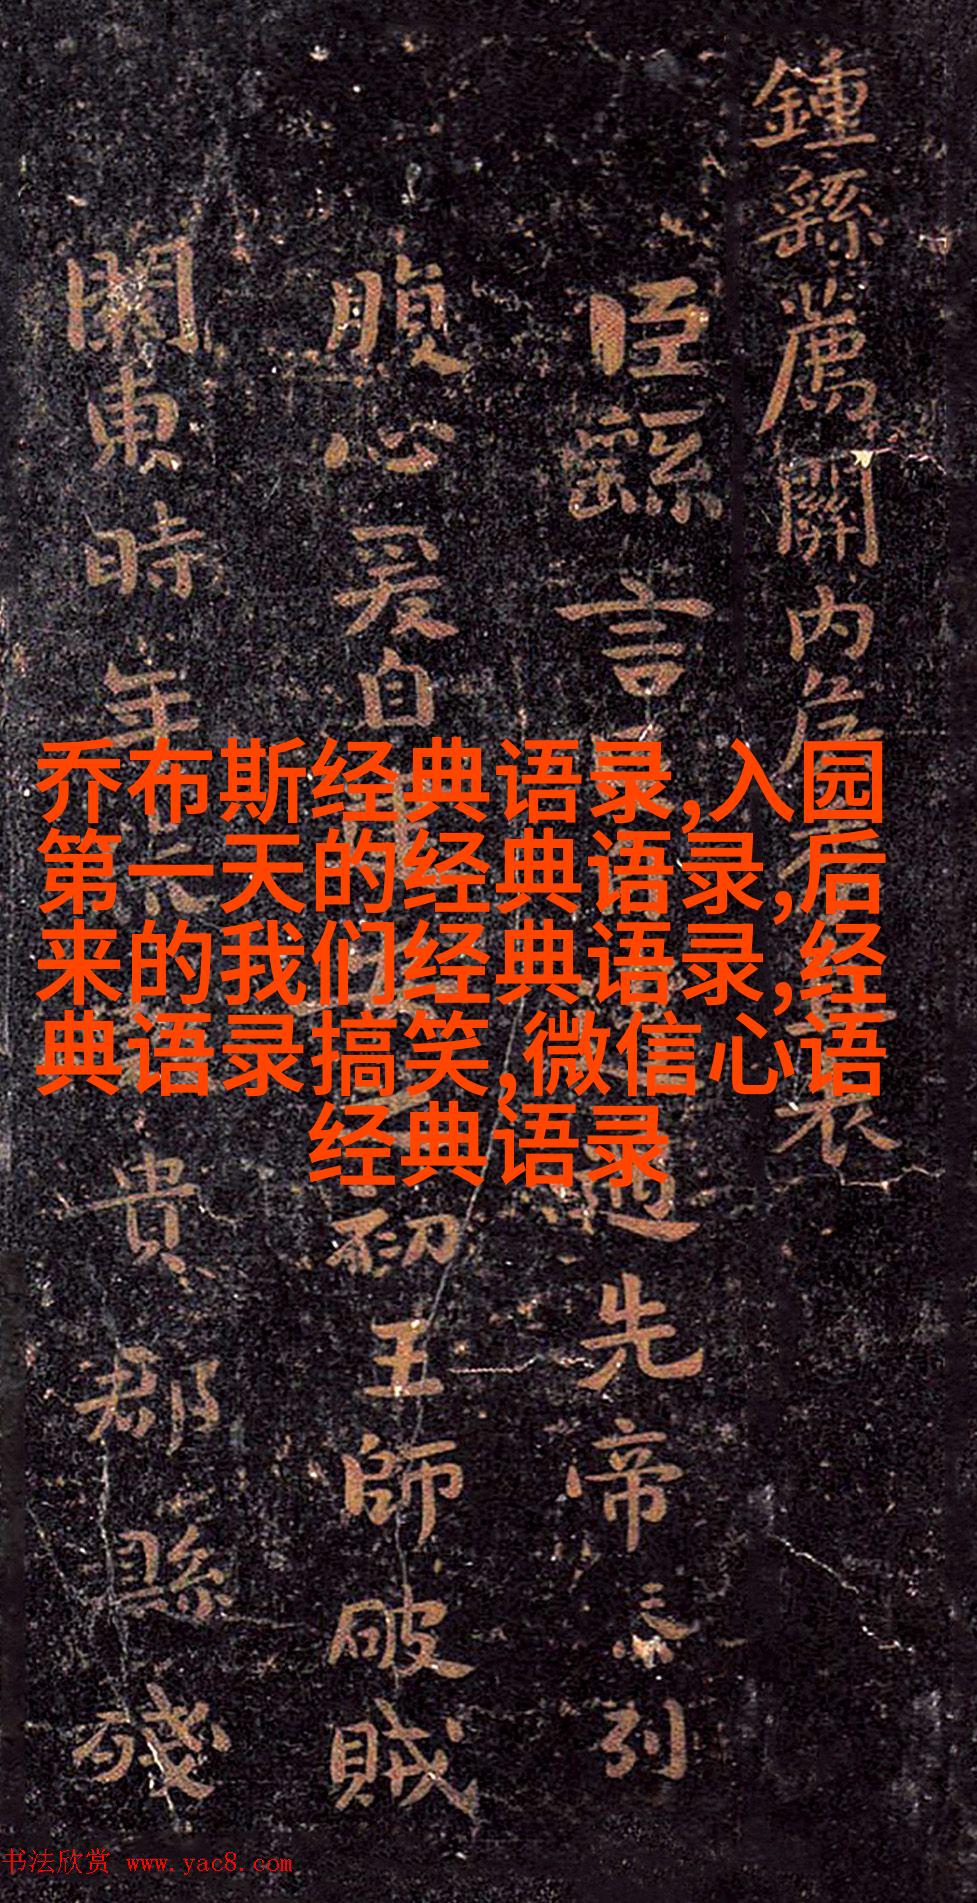 鍾繇薦關内侯表
臣繇言遇先帝忝列
腹心爰自初王師破賊
關東時年貴郡縣殘
乔布斯经典语录,入园
第一天的经典语录,后
来的我们经典语录,经
典语录搞笑,微信心语
经典语录
书法欣赏 www.yac8.com